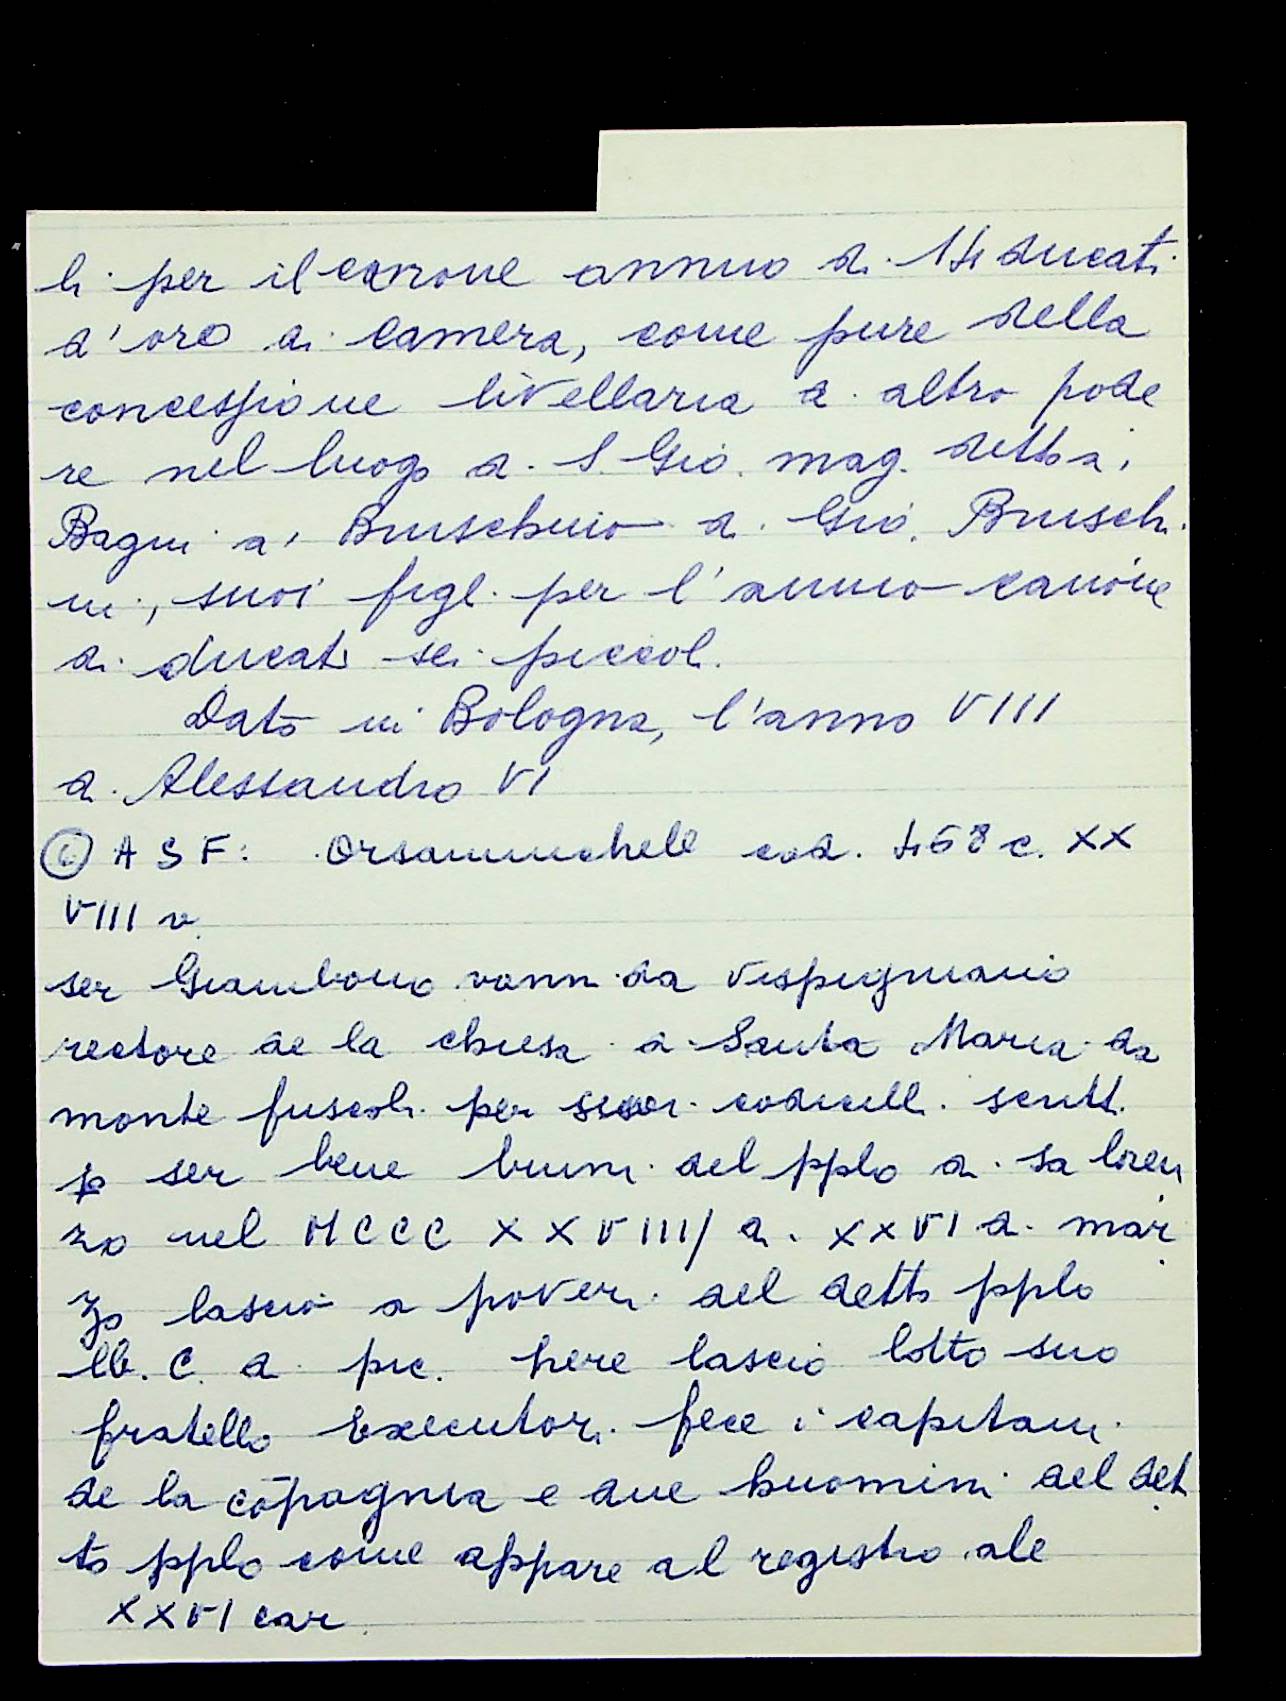 li per il canone annuo di 14 ducati
d'oro di Camera, come pure della
concessione livellaria di altro pode
re nel luogo di S. Gio. mag. detto a,
Bagni a, Bruschuio di Gio. Bruschi
ni, suoi figli per l'annuo canone
di ducati sei piccoli.
Dato in Bologna, l'anno VIII
di Alessandro VI
ASF: Orsammichele cod. 468 c. XX
VIII v.
ser Giambono vanni da Vespignano
rectore de la chiesa di Santa Maria da
monte fuscoli per suoi codicilli scritti
p ser bene bruni del pplo di sa loren
zo nel MCCC XXVIII/ di XXVI di mar
zo lascio a poveri del detto pplo
lb. C. di pic. here lascio lotto suo
fratello Executori fece i capitani
de la cōpagnia e due buomini del det
to pplo come appare al registro ale
XXVI car.